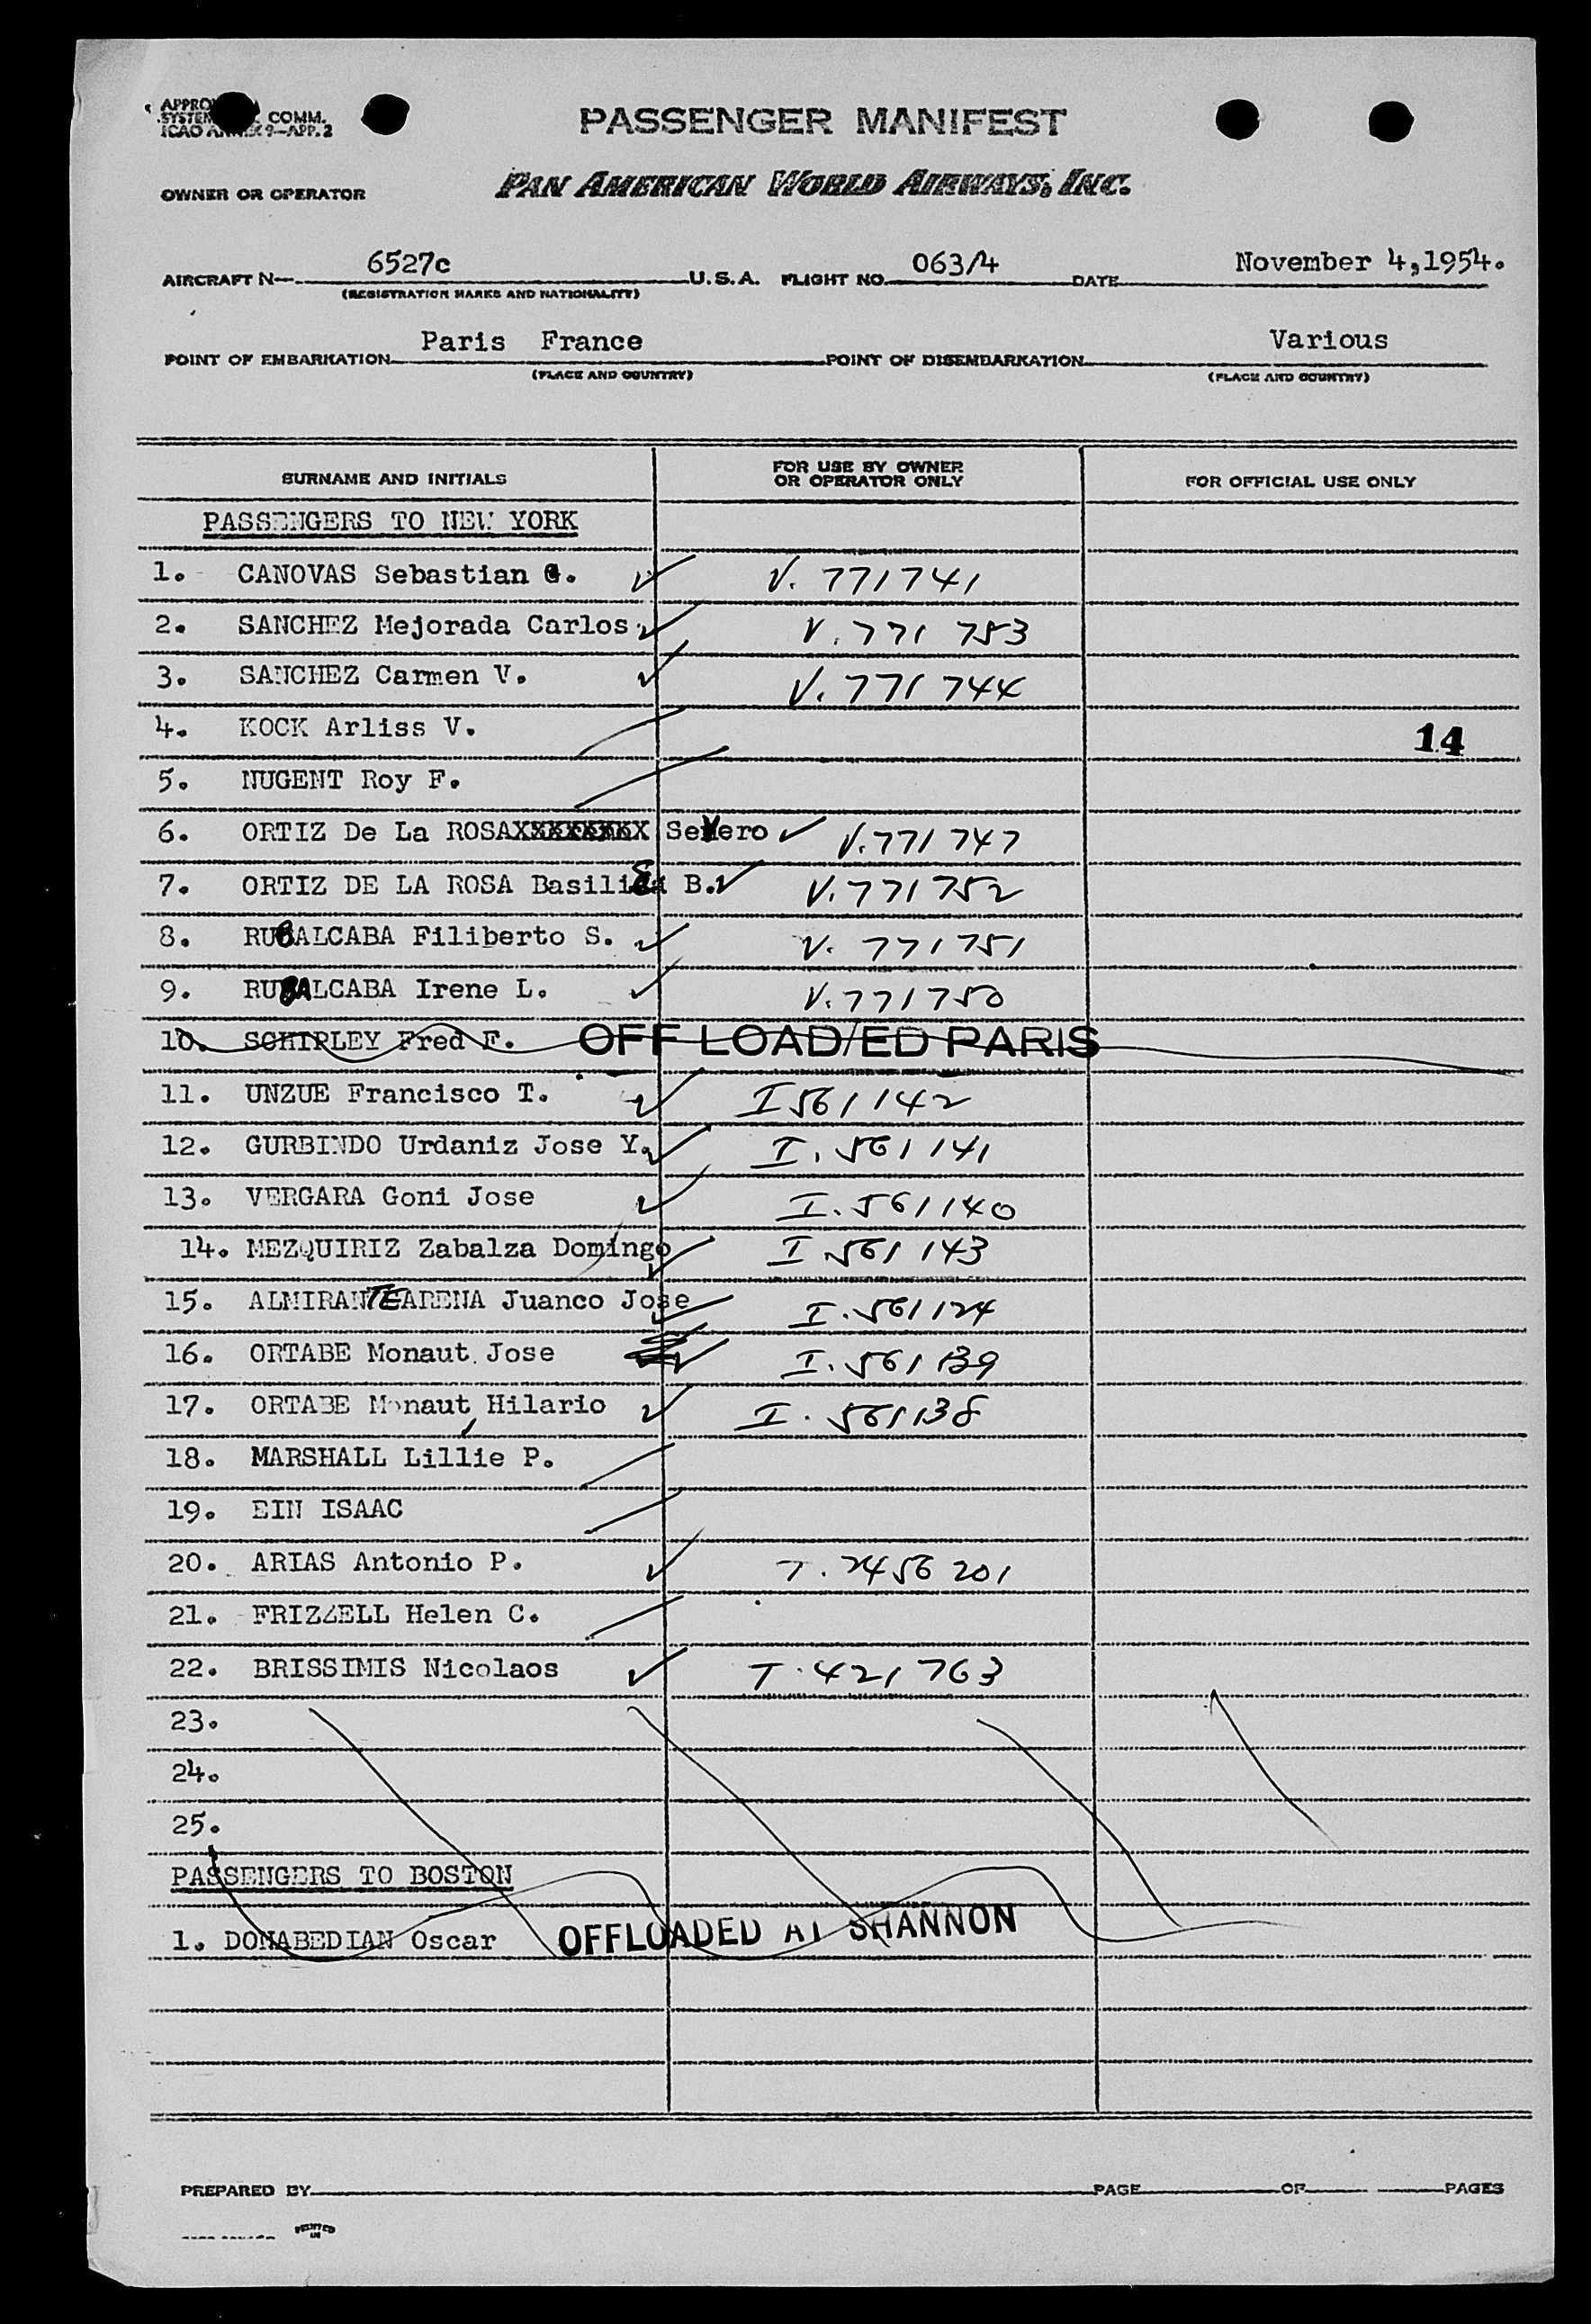 COMM.
ICAO ANNEX 9—APP. 2
PASSENGER MANIFEST
OWNER OR OPERATOR PAN AMERICAN WORLD AIRWAYS, INC.
AIRCRAFT N— 6527c U.S.A. FLIGHT NO. 063/4 DATE November 4,1954.
(REGISTRATION MARKS AND NATIONALITY)
POINT OF EMBARKATION Paris France POINT OF DISEMBARKATION Various
(PLACE AND COUNTRY) (PLACE AND COUNTRY)
SURNAME AND INITIALS FOR USE BY OWNER OR OPERATOR ONLY FOR OFFICIAL USE ONLY
PASSENGERS TO NEW YORK
1. CANOVAS Sebastian G. V. 771741
2. SANCHEZ Mejorada Carlos V. 771 753
3. SANCHEZ Carmen V. V. 771 744
4. KOCK Arliss V. 14
5. NUGENT Roy F.
6. ORTIZ De La ROSAXXXXXXXX Severo V. 771 747
7. ORTIZ DE LA ROSA B. V. 771752
8. RUBALCABA Filiberto S. V. 771751
9. RUBALCABA Irene L. V. 771750
10. SCHIPLEY Fred F. OFF LOAD/ED PARIS
11. UNZUE Francisco T. I 561142
12. GURBINDO Urdaniz Jose Y. I. 561 141
13. VERGARA Goni Jose I. 561140
14. MEZQUIRIZ Zabalza Domingo I 561 143
15. ALMIRANTEARENA Juanco Jose I. 561124
16. ORTABE Monaut Jose I. 561139
17. ORTABE Monaut Hilario I. 561138
18. MARSHALL Lillie P.
19. EIN ISAAC
20. ARIAS Antonio P. T. 2456 201
21. FRIZZELL Helen C.
22. BRISSIMIS Nicolaos T. 421 763
23.
24.
25.
PASSENGERS TO BOSTON
1. DONABEDIAN Oscar OFFLOADED AT SHANNON
PREPARED BY PAGE OF PAGES
PRINTED
IN